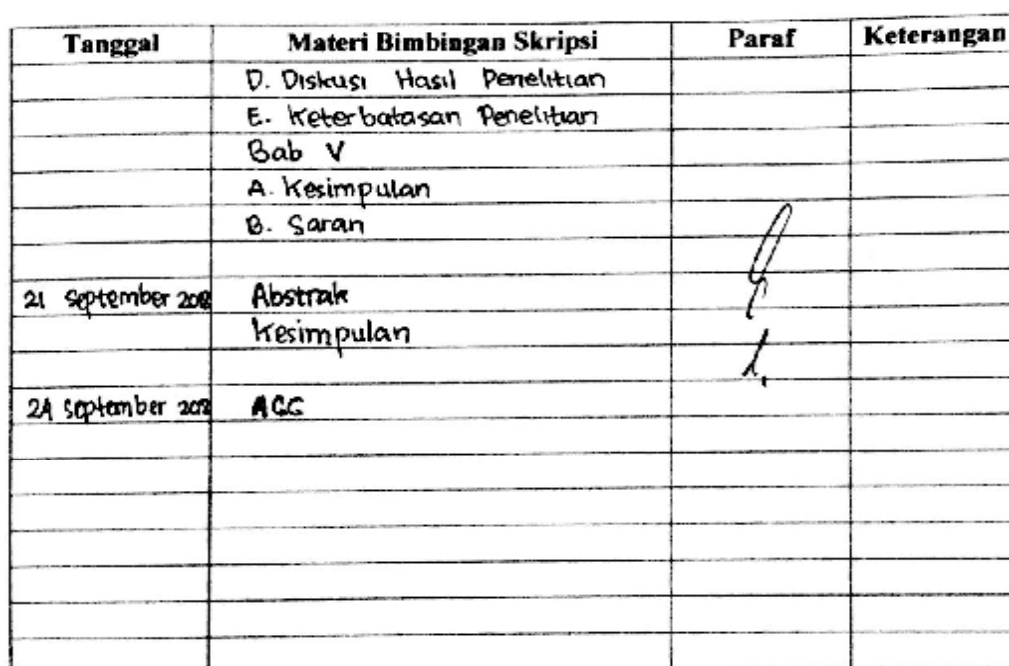 Tanggal Materi Bimbingan Skripsi Paraf Keterangan
D. Diskusi Hasil Penelitian
E. Keterbatasan Penelitian
Bab V
A. Kesimpulan
B. Saran
21 September Abstrak
Kesimpulan
24 September ACC